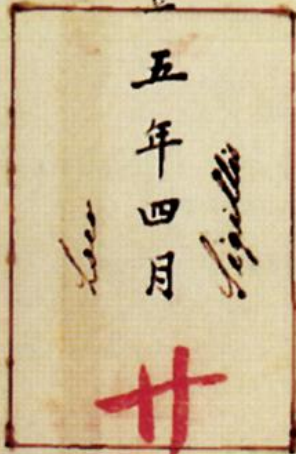 五年四月
廿
Loco
Sigilli